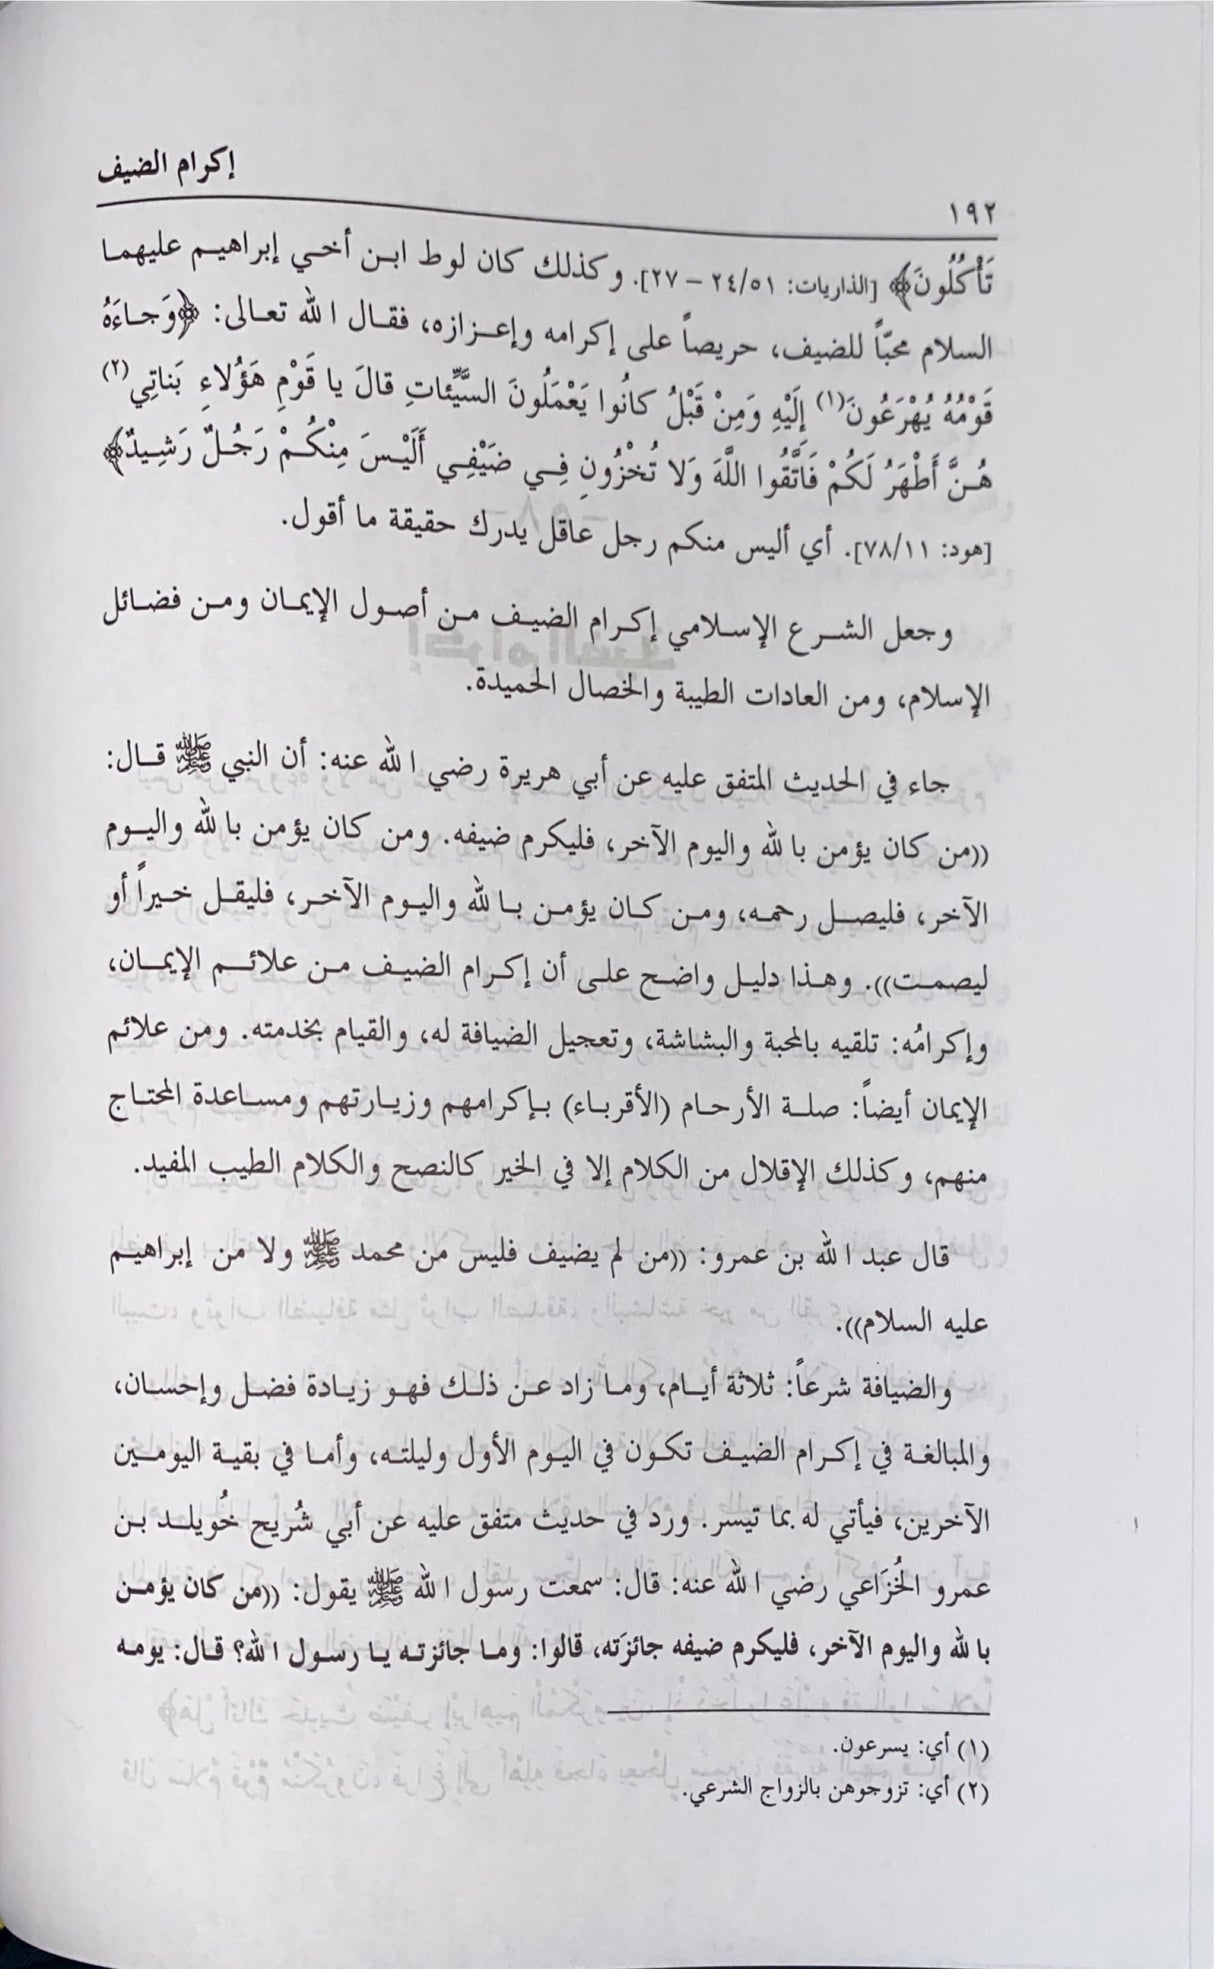 إكرام الضيف
١٩٢
تَأْكُلُونَ﴾ [الذاريات: ٢٤/٥١ – ٢٧]. وكذلك كان لوط ابن أخي إبراهيم عليهما
السلام محبّاً للضيف، حريصاً على إكرامه وإعزازه، فقال الله تعالى: ﴿وَجاءَهُ
قَوْمُهُ يُهْرَعُونَ(١) إِلَيْهِ وَمِنْ قَبْلُ كانُوا يَعْمَلُونَ السَّيِّئاتِ قالَ يا قَوْمِ هَؤُلاءِ بَناتِي(٢)
هُنَّ أَطْهَرُ لَكُمْ فَاتَّقُوا اللَّهَ وَلا تُخْزُونِ فِي ضَيْفِي أَلَيْسَ مِنْكُمْ رَجُلٌ رَشِيدٌ﴾
[هود: ٧٨/١١]. أي أليس منكم رجل عاقل يدرك حقيقة ما أقول.
وجعل الشرع الإسلامي إكرام الضيف من أصول الإيمان ومن فضائل
الإسلام، ومن العادات الطيبة والخصال الحميدة.
جاء في الحديث المتفق عليه عن أبي هريرة رضي الله عنه: أن النبي ﷺ قال:
((من كان يؤمن بالله واليوم الآخر، فليكرم ضيفه. ومن كان يؤمن بالله واليوم
الآخر، فليصل رحمه، ومن كان يؤمن بالله واليوم الآخر، فليقل خيراً أو
ليصمت)). وهذا دليل واضح على أن إكرام الضيف من علائم الإيمان،
وإكرامُه: تلقيه بالمحبة والبشاشة، وتعجيل الضيافة له، والقيام بخدمته. ومن علائم
الإيمان أيضاً: صلة الأرحام (الأقرباء) بإكرامهم وزيارتهم ومساعدة المحتاج
منهم، وكذلك الإقلال من الكلام إلا في الخير كالنصح والكلام الطيب المفيد.
قال عبد الله بن عمرو: ((من لم يضيف فليس من محمد ﷺ ولا من إبراهيم
عليه السلام)).
والضيافة شرعاً: ثلاثة أيام، وما زاد عن ذلك فهو زيادة فضل وإحسان،
والمبالغة في إكرام الضيف تكون في اليوم الأول وليلته، وأما في بقية اليومين
الآخرين، فيأتي له بما تيسر. ورد في حديث متفق عليه عن أبي شُريح خُويلد بن
عمرو الخُزَاعي رضي الله عنه: قال: سمعت رسول الله ﷺ يقول: ((من كان يؤمن
بالله واليوم الآخر، فليكرم ضيفه جائزَته، قالوا: وما جائزته يا رسول الله؟ قال: يومه
(١) أي: يسرعون.
(٢) أي: تزوجوهن بالزواج الشرعي.